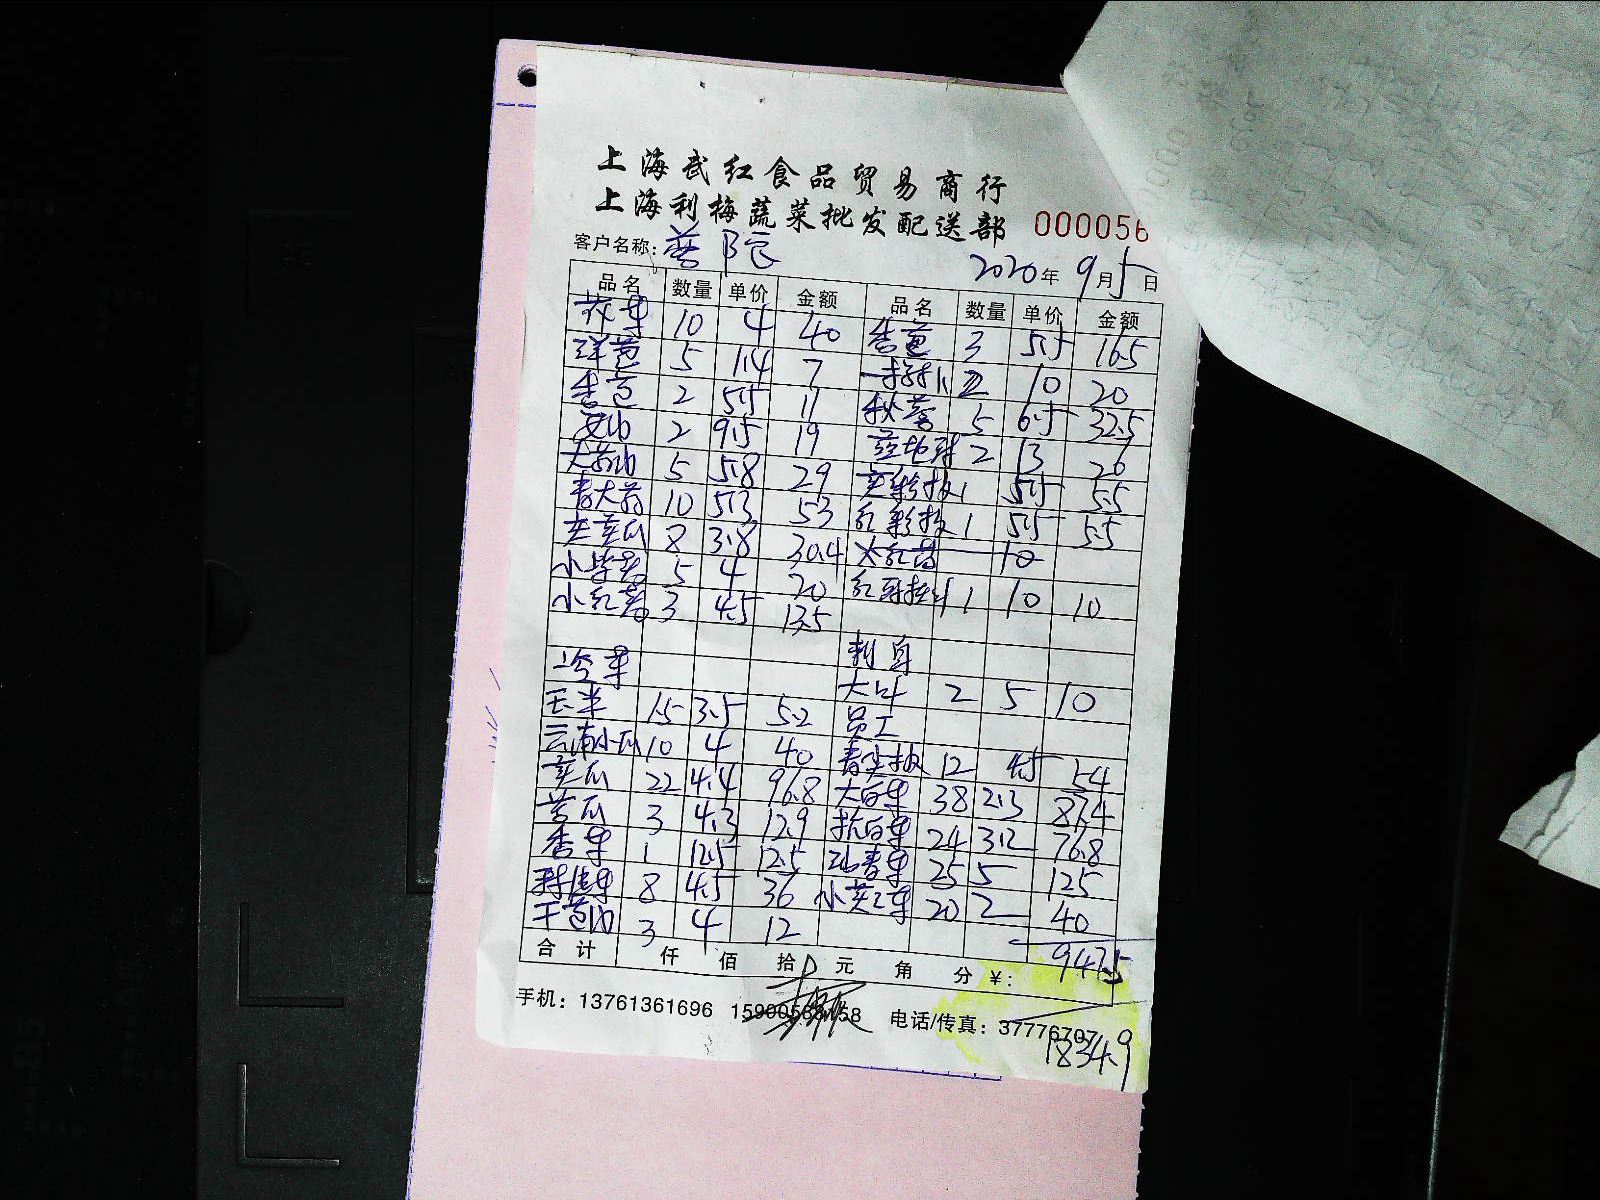 上海武红食品贸易商行
上海利梅蔬菜批发配送部 000056
客户名称: 2020年 9月5日
品名 数量 单价 金额 品名 数量 单价 金额
花菜 10 4 40 香葱 3 5.5 16.5
洋葱 5 1.4 7 2 10 20
香芒 2 5.5 11 秋葵 5 6.5 32.5
2 9.5 19 2 13 26
5 5.8 29 黄彩椒 1 5.5 5.5
10 5.3 53 红彩椒 1 5.5 5.5
8 3.8 30.4 10
5 4 20 1 10 10
3 4.5 13.5
冷菜 刺身
玉米 1.5 3.5 5.2 大叶 2 5 10
云南小瓜 10 4 40 员工
黄瓜 22 4.4 96.8 青尖椒 12 4.5 54
苦瓜 3 4.3 12.9 大白菜 38 2.3 87.4
香菜 1 12.5 12.5 杭白菜 24 3.2 76.8
8 4.5 36 青菜 25 5 125
3 4 12 20 2 40
合计 仟 佰 拾 元 角 分 ¥: 947.5
手机: 13761361696 电话/传真: 37776707
1834.9